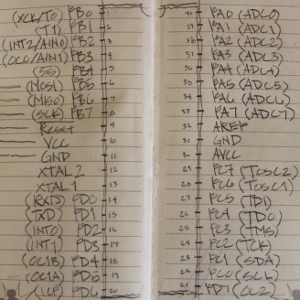 (XCK/T0) PB0 1
(T1) PB1 2
(INT2/AIN0) PB2 3
(OC0/AIN1) PB3 4
(SS) PB4 5
(MOSI) PB5 6
(MISO) PB6 7
(SCK) PB7 8
Reset 9
VCC 10
GND 11
XTAL2 12
XTAL1 13
(RXD) PD0 14
(TXD) PD1 15
(INT0) PD2 16
(INT1) PD3 17
(OC1B) PD4 18
(OC1A) PD5 19
(ICP) PD6 20
40 PA0 (ADC0)
39 PA1 (ADC1)
38 PA2 (ADC2)
37 PA3 (ADC3)
36 PA4 (ADC4)
35 PA5 (ADC5)
34 PA6 (ADC6)
33 PA7 (ADC7)
32 AREF
31 GND
30 AVCC
29 PC7 (TOSC2)
28 PC6 (TOSC1)
27 PC5 (TDI)
26 PC4 (TDO)
25 PC3 (TMS)
24 PC2 (TCK)
23 PC1 (SDA)
22 PC0 (SCL)
21 PD7 (OC2)